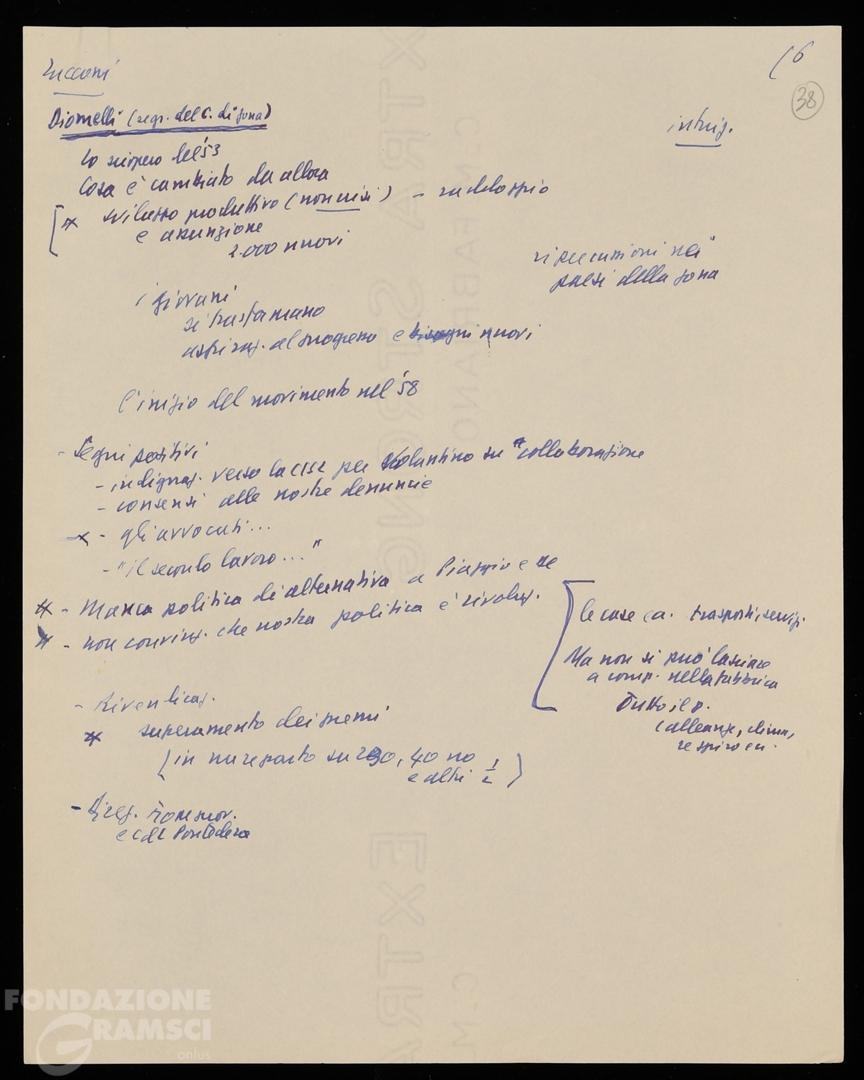 (6
38
Zucconi
Diomelli (segr. del C. di zona)
intrig.
Lo sciopero del '53
Cosa è cambiato da allora
* sviluppo produttivo (non crisi) – raddoppio
e assunzione
2.000 nuovi
ripercussioni nei
paesi della zona
i giovani
si trasformano
aspiraz. al progresso e bisogni nuovi
l'inizio del movimento nel '58
- Segni positivi
- indignaz. verso la CISL per volantino su "collaborazione
- consensi alle nostre denuncie
x - gli avvocati...
- "il secondo lavoro..."
* - Manca politica di alternativa a Piaggio e
* - non convinz. che nostra politica è rivoluz.
le case ca. trasporti, servizi.
Ma non si può lasciare
a comp. nella fabbrica
Tutto il p.
(alleanze, clima,
respiro
- Rivendicaz.
* superamento dei premi
(in un reparto su 230, 40 no
e altri 1/2)
e CdL Pontedera
EXTRA STRONG
C.M. FABRIANO
EXTRA
C.M.
FONDAZIONE
GRAMSCI
onlus